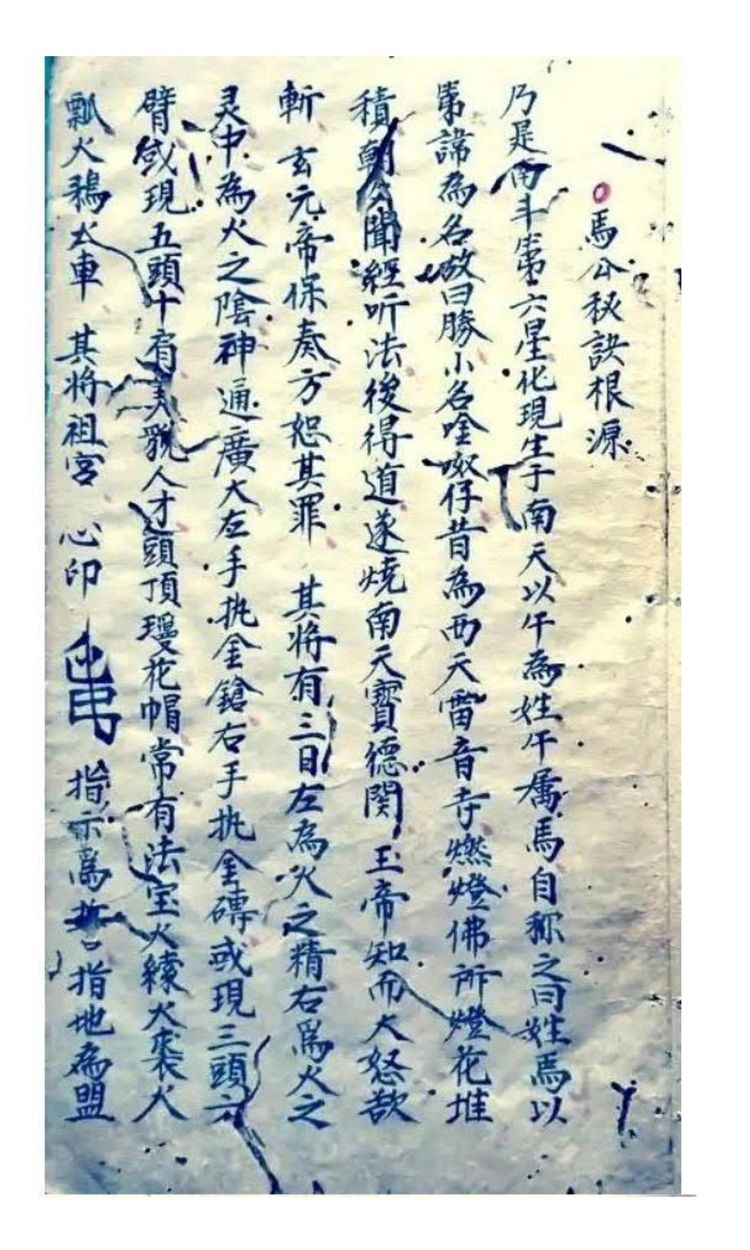 馬公秘訣根源
乃是南斗第六星化現生于南天以午為姓午属馬自称之曰姓馬以
第諦為名故曰勝小名唫㘃仔昔為西天雷音寺燃燈佛所燈花堆
積朝夕聞經听法後得道遂燒南天寶德関玉帝知而大怒欲
斬 玄元帝保奏方恕其罪 其将有三目左為火之精右為火之
灵中為火之陰神通廣大左手执金鎗右手执金磚或現三頭六
臂或現五頭十 美貌人才頭頂瓊花帽常有法宝火繂火裘火
瓢火鴉火車 其将祖宮 心印 指示為 指地為盟